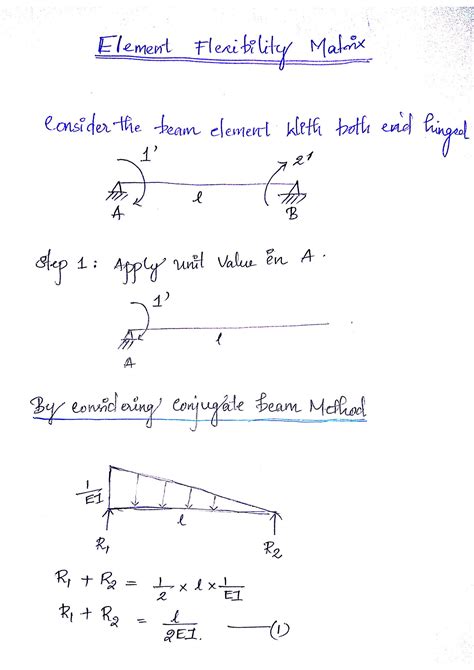 Element Flexibility Matrix
Consider the beam element with both end hinged
1' 2'
l
A B
Step 1: Apply unit value in A.
1'
l
A
By considering conjugate beam Method
1/EI
l
R₁ R₂
R₁ + R₂ = 1/2 × l × 1/EI
R₁ + R₂ = l/2EI. —(1)